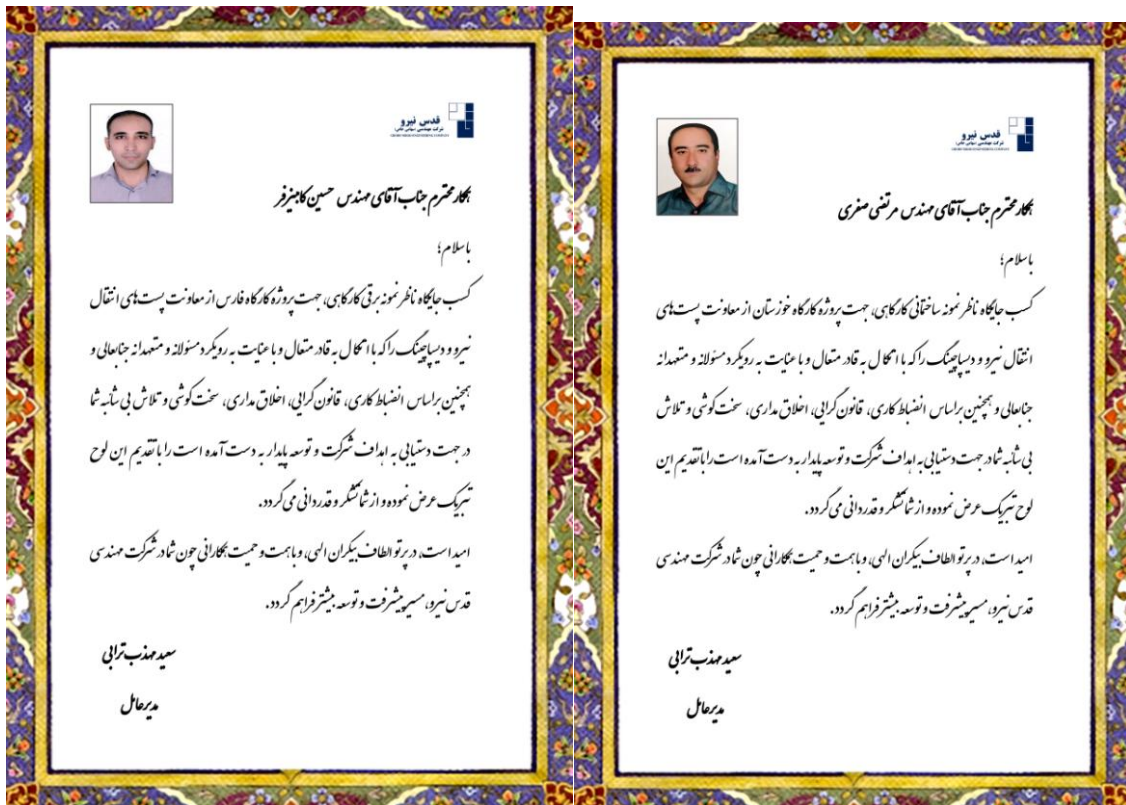 قدس نیرو
شرکت مهندسی (سهامی خاص)
GHODS NIROO ENGINEERING COMPANY
همکار محترم جناب آقای مهندس مرتضی صفری
باسلام؛
کسب جایگاه ناظر نمونه ساختمانی کارگاهی، جهت پروژه کارگاه خوزستان از معاونت پست‌های
انتقال نیرو و دیسپاچینگ را که با اتکال به قادر متعال و با عنایت به رویکرد مسئولانه و متعهدانه
جنابعالی و همچنین براساس انضباط کاری، قانون‌گرایی، اخلاق مداری، سخت‌کوشی و تلاش
بی شائبه شما در جهت دستیابی به اهداف شرکت و توسعه پایدار به دست آمده است را با تقدیم این
لوح تبریک عرض نموده و از شما تشکر و قدردانی می‌گردد.
امید است، در پرتو الطاف بیکران الهی، و با همت و حمیت همکارانی چون شما در شرکت مهندسی
قدس نیرو، مسیر پیشرفت و توسعه بیشتر فراهم گردد.
سعید مهذب ترابی
مدیرعامل
قدس نیرو
شرکت مهندسی (سهامی خاص)
GHODS NIROO ENGINEERING COMPANY
همکار محترم جناب آقای مهندس حسین
باسلام؛
کسب جایگاه ناظر نمونه برقی کارگاهی، جهت پروژه کارگاه فارس از معاونت پست‌های انتقال
نیرو و دیسپاچینگ را که با اتکال به قادر متعال و با عنایت به رویکرد مسئولانه و متعهدانه جنابعالی و
همچنین براساس انضباط کاری، قانون‌گرایی، اخلاق مداری، سخت‌کوشی و تلاش بی شائبه شما
در جهت دستیابی به اهداف شرکت و توسعه پایدار به دست آمده است را با تقدیم این لوح
تبریک عرض نموده و از شما تشکر و قدردانی می‌گردد.
امید است، در پرتو الطاف بیکران الهی، و با همت و حمیت همکارانی چون شما در شرکت مهندسی
قدس نیرو، مسیر پیشرفت و توسعه بیشتر فراهم گردد.
سعید مهذب ترابی
مدیرعامل